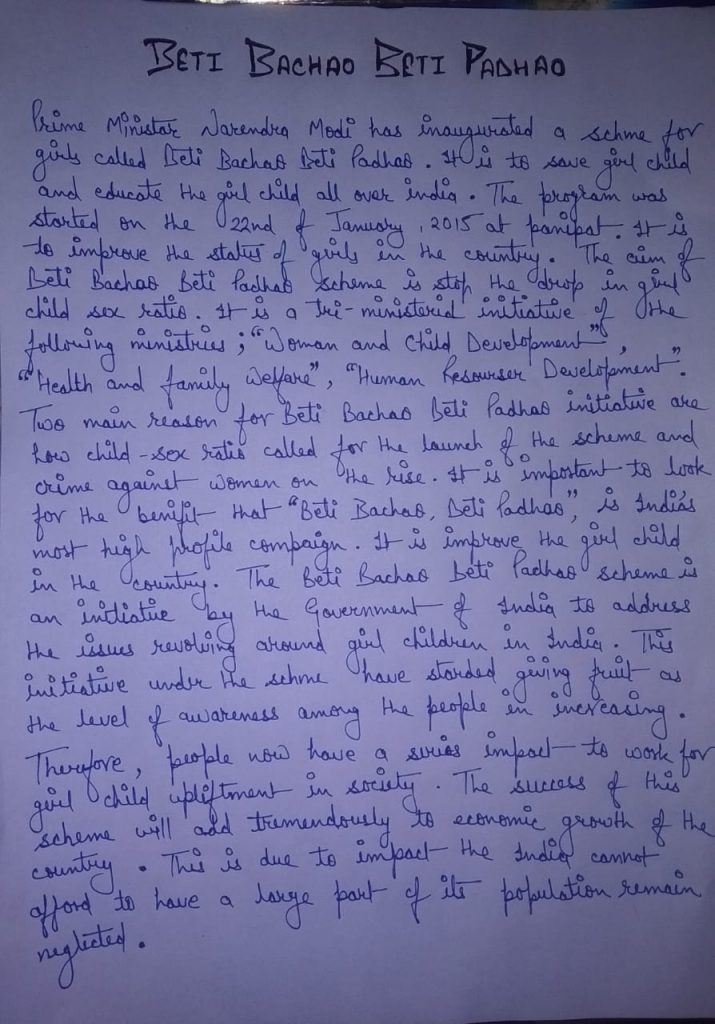 BETI BACHAO BETI PADHAO
Prime Ministar Narendra Modi has inaugurated a schme for
girls called Beti Bachao Beti Padhao. It is to save girl child
and educate the girl child all over india. The program was
started on the 22nd of January, 2015 at panipat. It is
to improve the status of girls in the country. The aim of
Beti Bachao Beti Padhao scheme is stop the drop in girl
child sex ratio. It is a tri-ministerid initiative of the
following ministries; "Woman and Child Development",
"Health and family welfare", "Human Resourser Development".
Two main reason for Beti Bachao Beti Padhao initiative are
how child-sex ratio called for the launch of the scheme and
crime against women on the rise. It is important to look
for the benifit that "Beti Bachao, Beti Padhao", is India's
most high profile compaign. It is improve the girl child
in the country. The Beti Bachao Beti Padhao scheme is
an initiative by the Government of India to address
the issues revolving around girl children in India. This
initiative under the schme have starded giving fruit as
the level of awareness among the people in increasing.
Therefore, people now have a sirios impact to work for
girl child upliftment in society. The success of this
scheme will add tremendously to economic growth of the
country. This is due to impact the India cannot
afford to have a large part of its population remain
neglected.